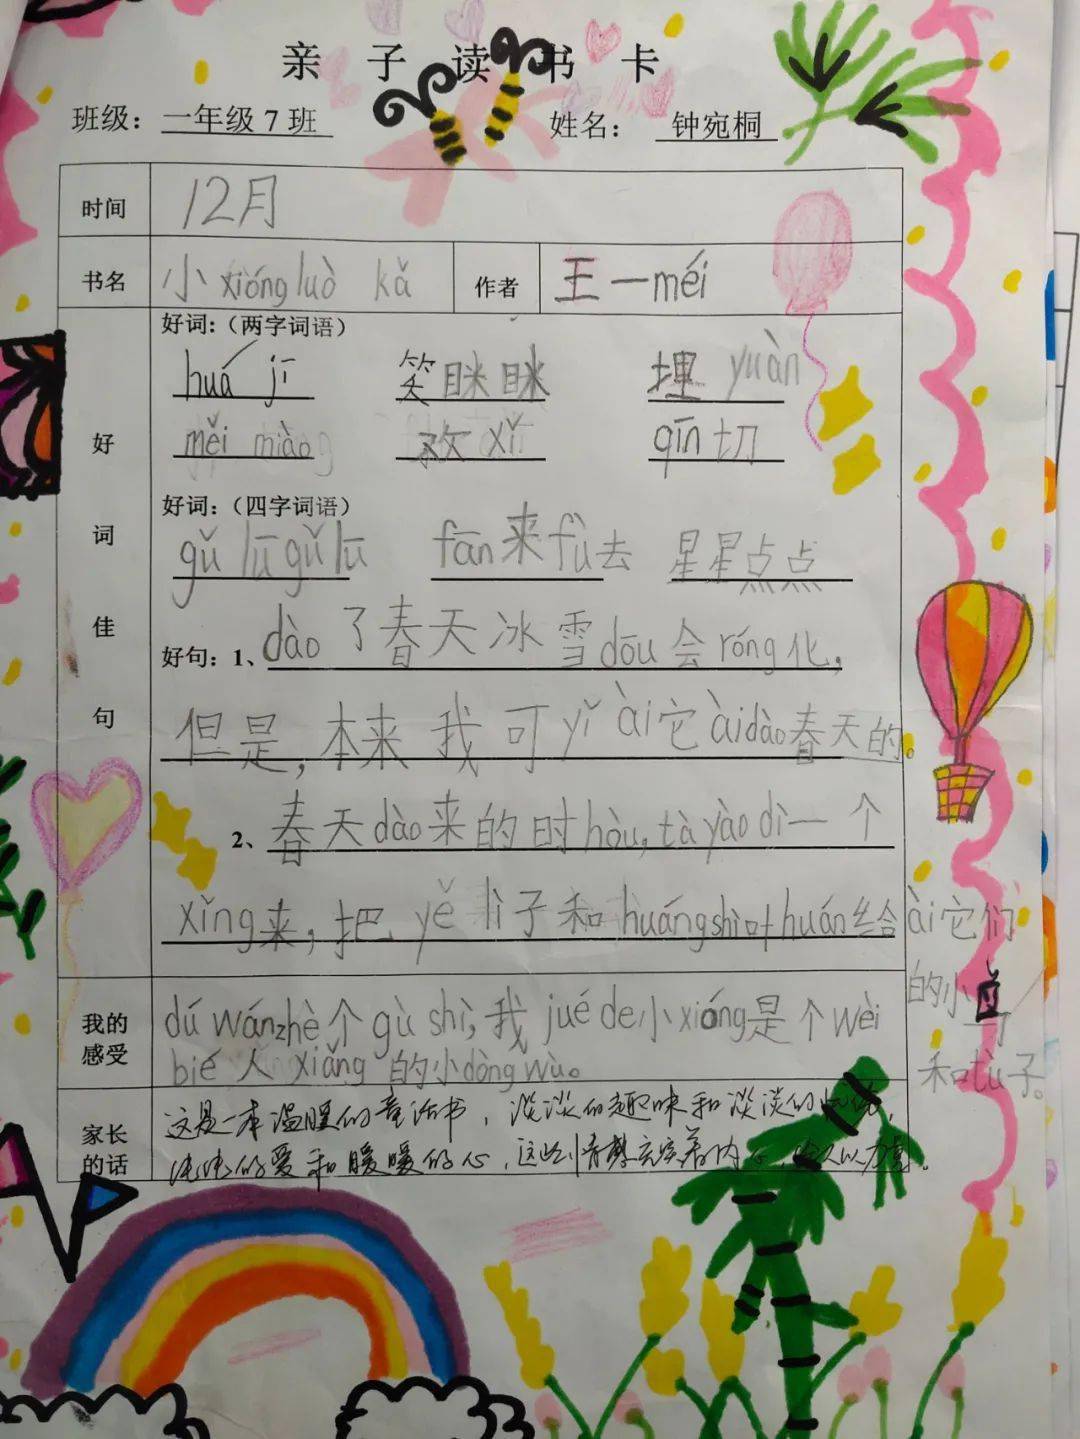 亲子读书卡
班级：一年级7班 姓名：钟宛桐
时间 12月
书名 小xióng luò kǎ 作者 王一méi
好词佳句
好词：（两字词语）
huá jī 笑眯眯 埋yuàn
měi miào 欢xǐ qīn切
好词：（四字词语）
gǔ lū gǔ lū fān来fù去 星星点点
好句：1、dào了春天冰雪dōu会róng化，
但是，本来我可yǐ ài它àidào春天的。
2、春天dào来的时hòu，tà yào dì一个
xǐng来，把yě lì子和huángshì叶huán给ài它们
的小鸟
和tù子。
我的感受
dú wán zhè个gù shì，我jué de小xióng是个wèi
bié人xiǎng的小dòng wù。
家长的话
这是一本温暖的童话书，淡淡的趣味和淡淡的忧伤，
浓浓的爱和暖暖的心，这些情愫充实着内心，给人以力量。